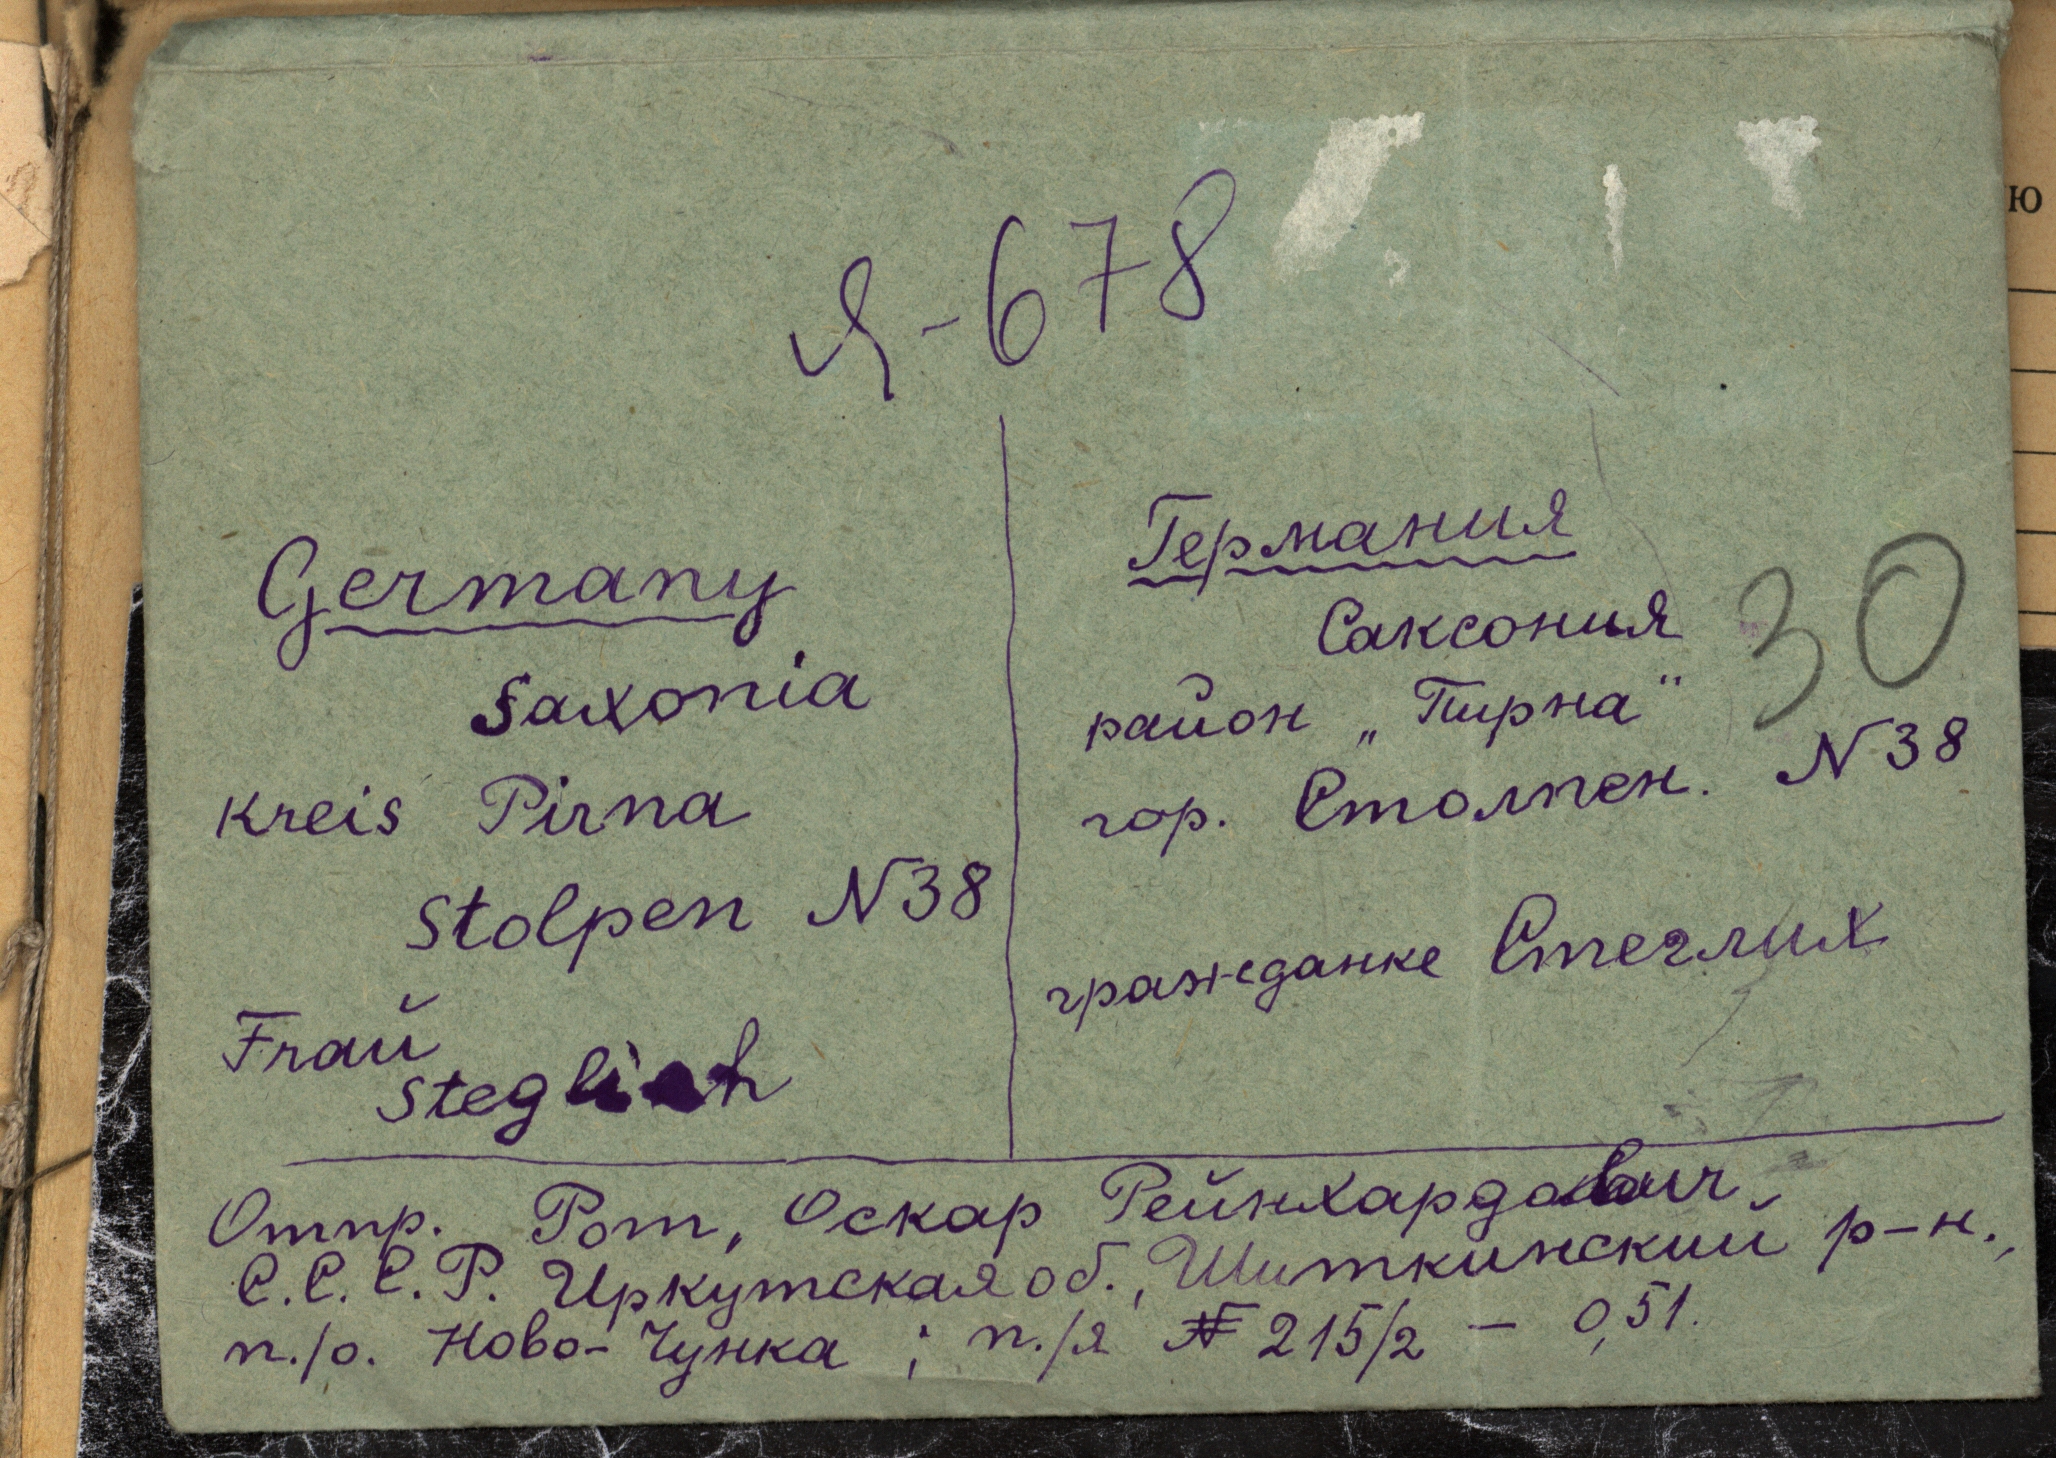 Я-678
Germany
Saxonia
Kreis Pirna
Stolpen N38
Frau
Steglich
Германия
Саксония
район „Пирна“
гор. Столпен. N38
30
гражданке Стеглих
Отпр. Рот, Оскар Рейнхардович
С.С.С.Р. Иркутская об., Шиткинский р-н.,
п./о. Ново-Чунка ; п./я № 215/2 – 0,51.
ю